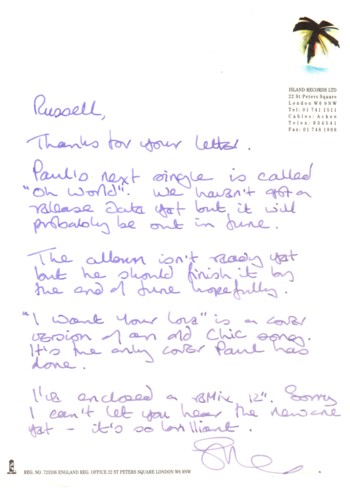 ISLAND RECORDS LTD
22 St Peters Square
London W6 9NW
Tel 01 741 1511
Telex 934541
Fax 01 748 1998
Russell,
Thanks for your letter.
Paul's next single is called
"Oh World". We haven't got a
release date yet but it will
probably be out in June.
The album isn't ready yet
but he should finish it by
the end of June hopefully.
"I Want Your Love" is a cover
version of an old Chic song.
It's the only cover Paul has
done.
I've enclosed a remix 12". Sorry
I can't let you hear the new one
yet - it's so brilliant.
REG. NO 723336 ENGLAND REG. OFFICE 22 ST PETERS SQUARE LONDON W6 9NW